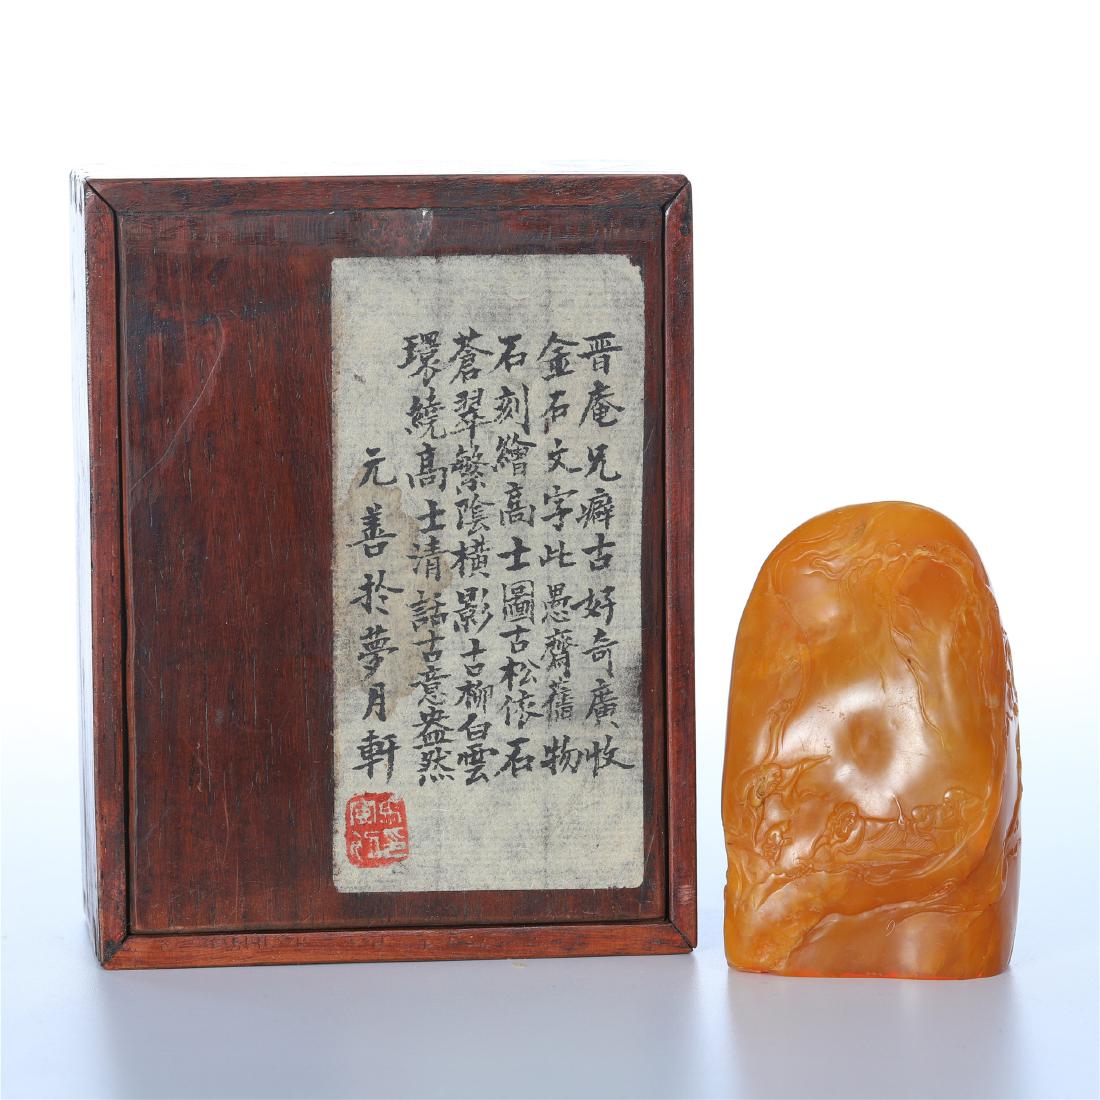 晋庵兄癖古好奇廣收
金石文字此愚齋舊物
石刻繪高士圖古松依石
蒼翠繁陰橫影古柳白雲
環繞高士清話古意盎然
元善於夢月軒